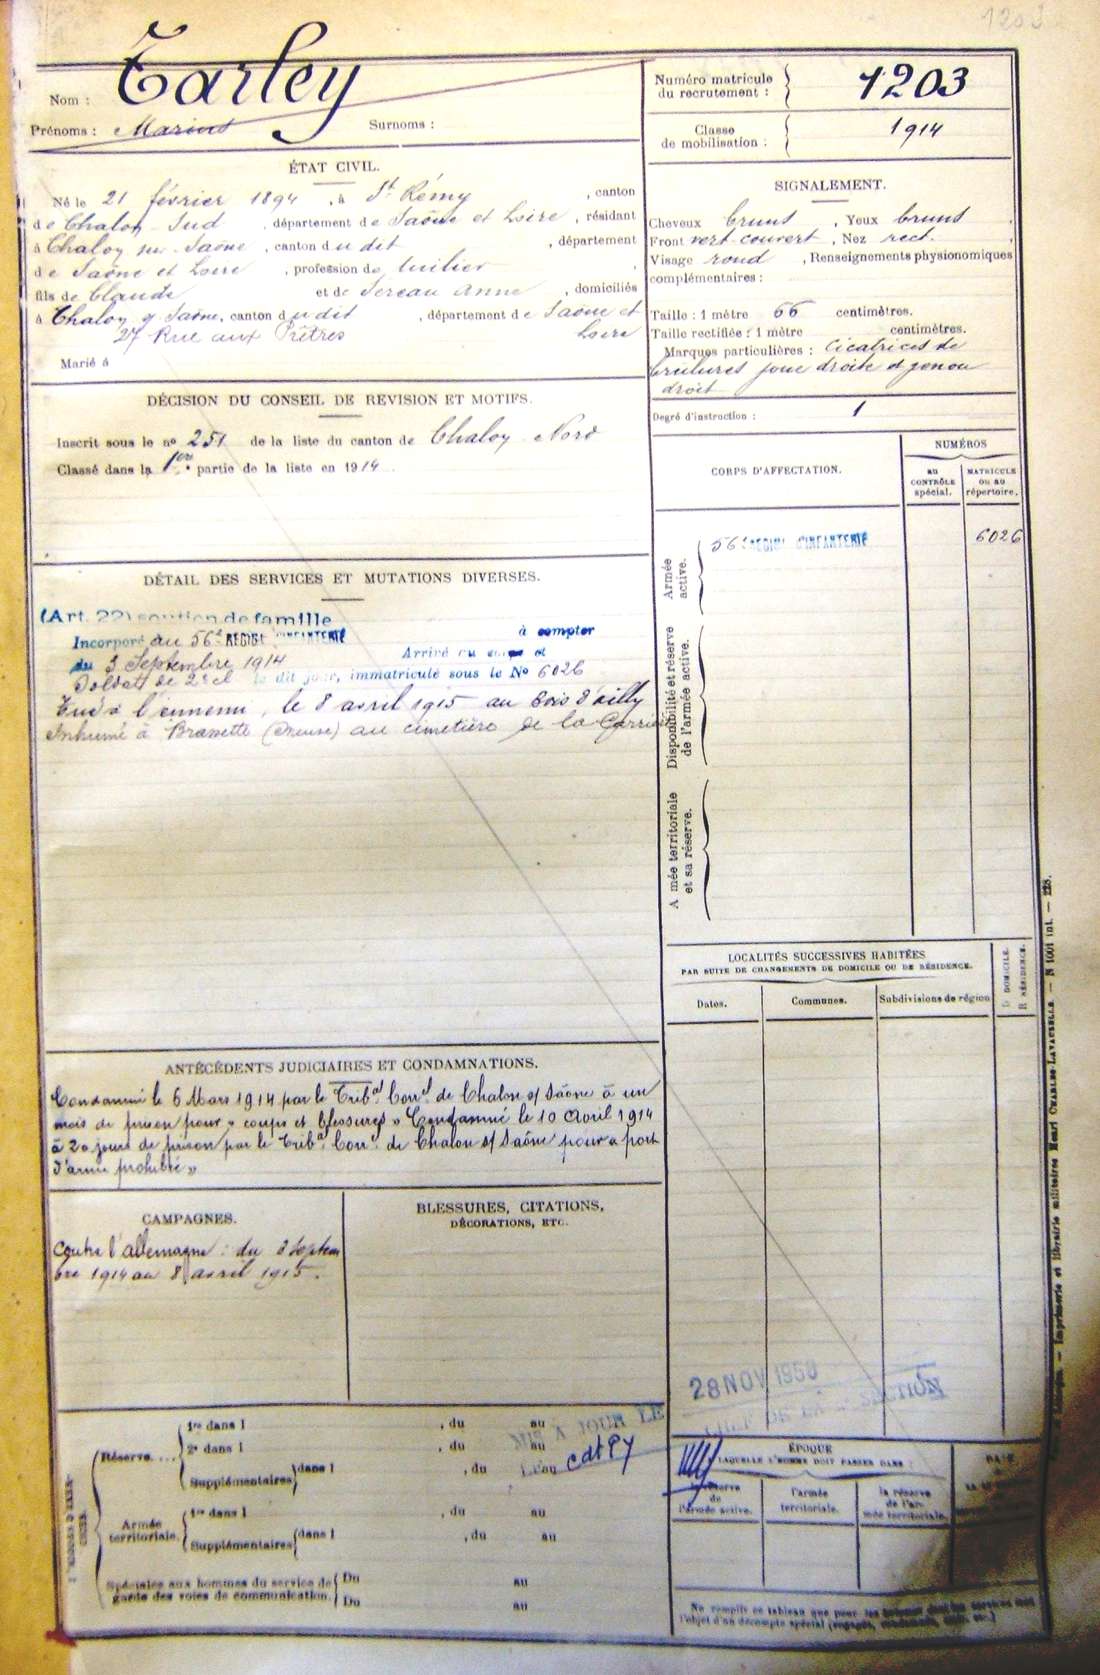 1203
Nom : Tarley
Prénoms : Marius Surnoms :
Numéro matricule du recrutement : 1203
Classe de mobilisation : 1914
ÉTAT CIVIL.
Né le 21 février 1894, à St Rémy, canton
de Chalon Sud, département de Saône et Loire, résidant
à Chalon sur Saône, canton du dit, département
de Saône et Loire, profession de tuilier,
fils de Claude et de Sereau Anne, domiciliés
à Chalon s/ Saône, canton du dit, département de Saône et
27 Rue aux Prêtres Loire
Marié à
SIGNALEMENT.
Cheveux bruns, Yeux bruns,
Front vert. couvert, Nez rect.,
Visage rond, Renseignements physionomiques
complémentaires :
Taille : 1 mètre 66 centimètres.
Taille rectifiée : 1 mètre centimètres.
Marques particulières : Cicatrices de
brulures joue droite et genou
droit
Degré d'instruction : 1
DÉCISION DU CONSEIL DE REVISION ET MOTIFS.
Inscrit sous le nº 251 de la liste du canton de Chalon Nord
Classé dans la 1ère partie de la liste en 1914.
CORPS D'AFFECTATION.
NUMÉROS
AU CONTRÔLE spécial.
MATRICULE OU AU répertoire.
Armée active.
56e REGIMt D'INFANTERIE 6026
Disponibilité et réserve de l'armée active.
A mée territoriale et sa réserve.
DÉTAIL DES SERVICES ET MUTATIONS DIVERSES.
(Art. 22) soutien de famille
Incorporé au 56e REGIMt D'INFANTERIE à compter
du 3 Septembre 1914 Arrivé au corps et
Soldat de 2e cl le dit jour, immatriculé sous le No 6026
Tué à l'ennemi, le 8 avril 1915 au Bois d'ailly
Inhumé à Brassette (Meuse) au cimetière de la Carrière
LOCALITÉS SUCCESSIVES HABITÉES
PAR SUITE DE CHANGEMENTS DE DOMICILE OU DE RÉSIDENCE.
Dates. Communes. Subdivisions de région
D DOMICILE.
R RÉSIDENCE.
ANTÉCÉDENTS JUDICIAIRES ET CONDAMNATIONS.
Condamné le 6 Mars 1914 par le Tribal Correl de Chalon s/ Saône à un
mois de prison pour « coups et blessures » Condamné le 10 Avril 1914
à 20 jours de prison par le Tribal Correl de Chalon s/ Saône pour « port
d'arme prohibée »
CAMPAGNES.
Contre l'allemagne : du 3 Septem
bre 1914 au 8 avril 1915.
BLESSURES, CITATIONS,
DÉCORATIONS, ETC.
28 NOV 1950
MIS A JOUR LE
CHEF DE LA SECTION
Réserve....
1re dans l , du au
2e dans l , du au
Supplémentaires dans l , du au
Armée territoriale.
1re dans l , du au
Supplémentaires dans l , du au
Spéciales aux hommes du service de garde des voies de communication.
Du au
Du au
ÉPOQUE
A LAQUELLE L'HOMME DOIT PASSER DANS :
la réserve de l'armée active.
l'armée territoriale.
la réserve de l'armée territoriale.
DATE
Ne remplir ce tableau que pour les
l'objet d'un décompte spécial (engagés,
Imprimerie et librairie militaires Henri CHARLES-LAVAUZELLE. — N 1001 int. — 128.